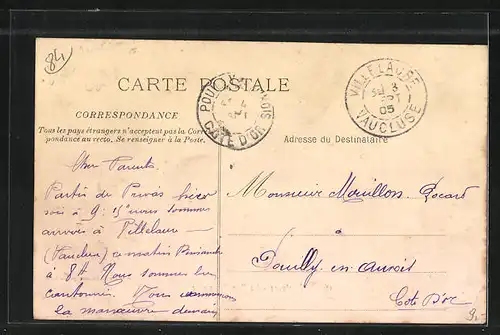 84
CARTE POSTALE
CORRESPONDANCE
Tous les pays étrangers n'acceptent pas la Corres-
pondance au recto. Se renseigner à la Poste.
Adresse du Destinataire
VILLELAURE
3
SEPT
05
VAUCLUSE
4
CÔTE D'OR
Chers Parents
Partis de Privas hier
soir à 9h 15 nous sommes
arrivés à Villelaure
(Vaucluse) ce matin
à 8h. Nous sommes en
cantonnés. Nous commençons
la manœuvre demain
Monsieur Mouillon
à
Pouilly en Auxois
Cote D'or
9.-